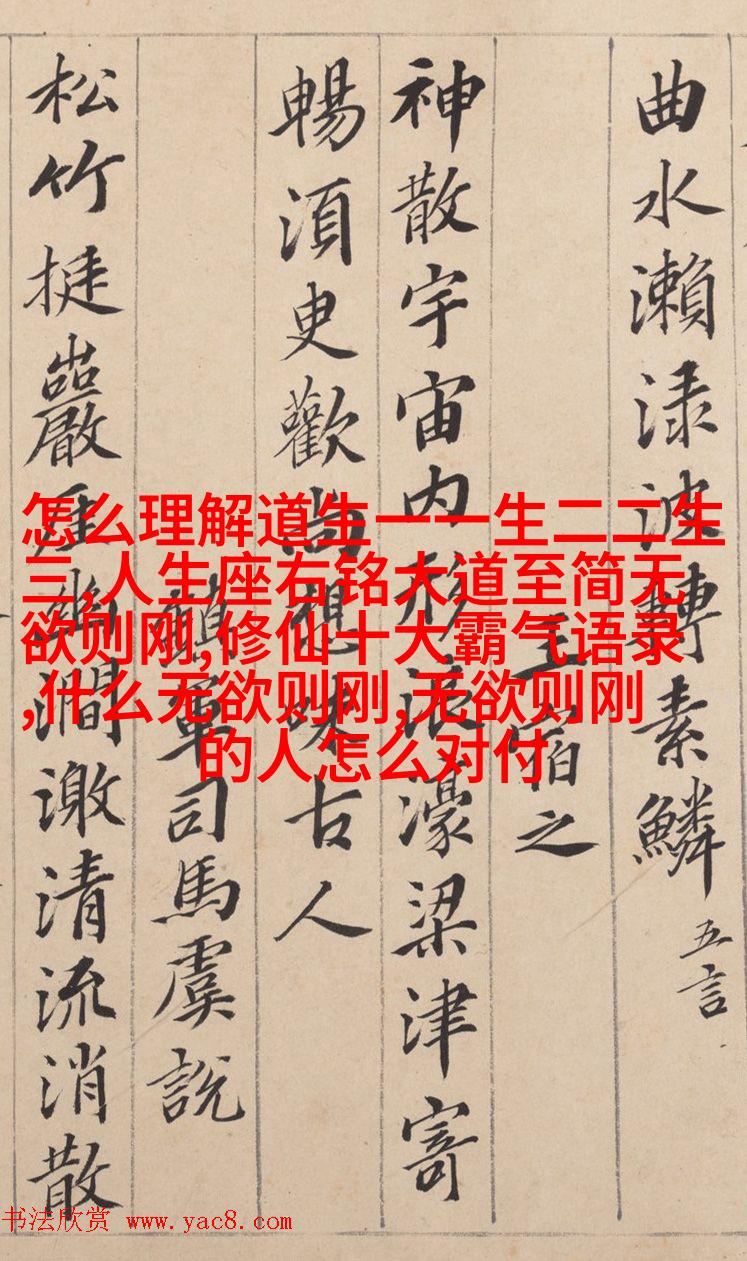 曲水瀨渌波轉素鱗 五言
王宿之
神散宇宙内形浪濠梁津寄
暢須臾歡尚想味古人
鎮軍司馬虞說
松竹挺巖崖幽澗激清流消散
怎么理解道生一一生二二生
三,人生座右铭大道至简无
欲则刚,修仙十大霸气语录
,什么无欲则刚,无欲则刚
的人怎么对付
书法欣赏 www.yac8.com